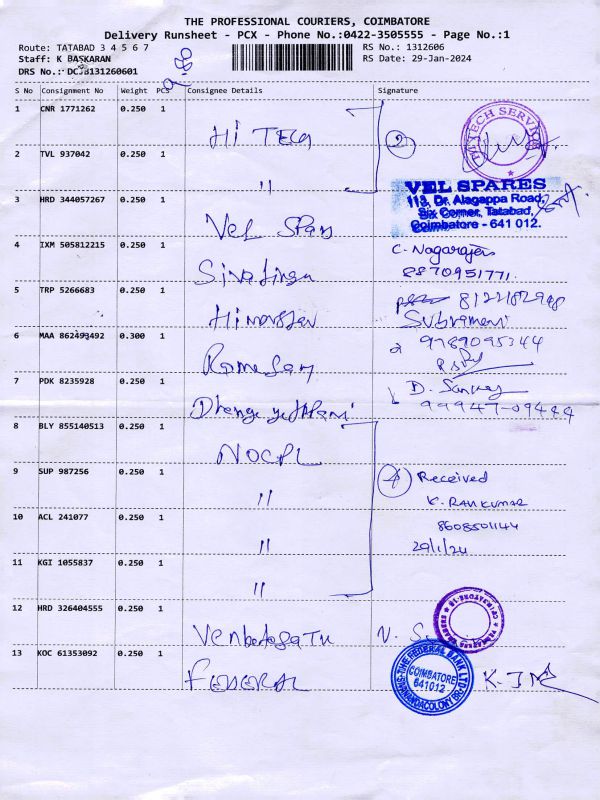 THE PROFESSIONAL COURIERS, COIMBATORE
Delivery Runsheet - PCX - Phone No.:0422-3505555 - Page No.:1
Route: TATABAD 3 4 5 6 7 RS No.: 1312606
Staff: K BASKARAN RS Date: 29-Jan-2024
DRS No.: DCJB131260601
S No Consignment No Weight PCS Consignee Details Signature
1 CNR 1771262 0.250 1 Hi TECH
2
HITECH SERVICE
2 TVL 937042 0.250 1 "
VEL SPARES
113, Dr. Alagappa Road,
Six Corner, Tatabad,
Coimbatore - 641 012.
3 HRD 344057267 0.250 1 Vel Spares
4 IXM 505812215 0.250 1
C. Nagarajan
8870951771.
5 TRP 5266683 0.250 1
8122182998
Subramani
6 MAA 862493492 0.300 1
9789095344
7 PDK 8235928 0.250 1
D. Sankar
99947-09444
8 BLY 855140513 0.250 1 NOCPL
9 SUP 987256 0.250 1 "
4 Received
K. RAMKUMAR
8608501144
29/1/24
10 ACL 241077 0.250 1 "
11 KGI 1055837 0.250 1 "
12 HRD 326404555 0.250 1
V. S.
13 KOC 61353092 0.250 1 FEDERAL
THE FEDERAL BANK LTD
COIMBATORE
641012